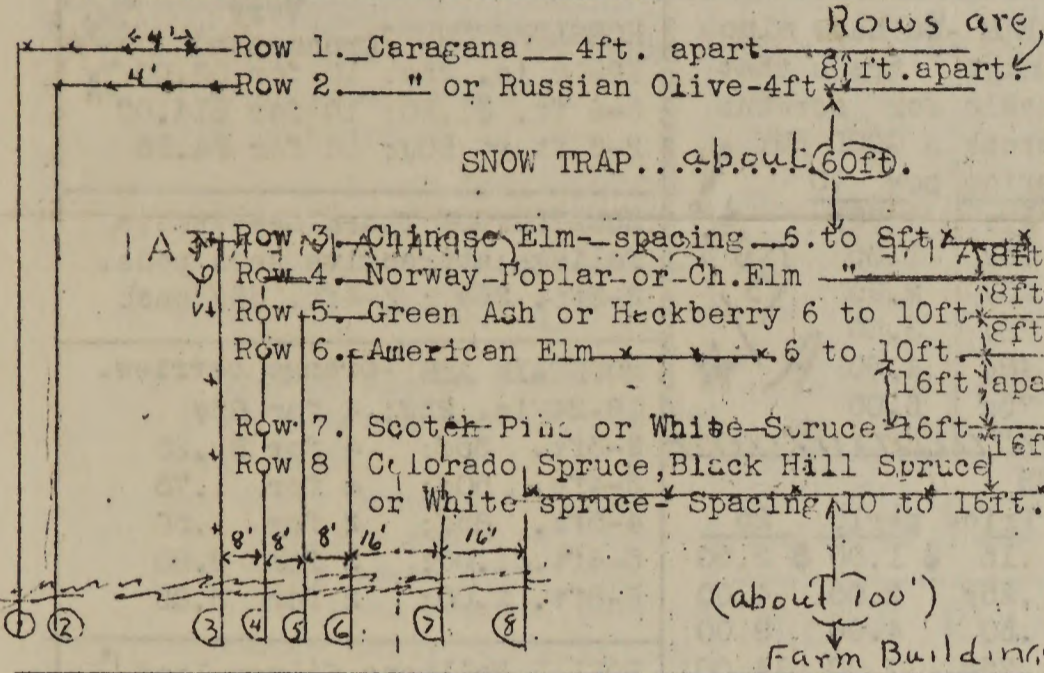 Rows are
4' Row 1. Caragana 4ft. apart 8 ft. apart.
4' Row 2. " or Russian Olive-4ft
SNOW TRAP...about 60ft.
Row 3. Chinese Elm- spacing 6 to 8ft
Row 4. Norway Poplar or Ch.Elm " 8ft
Row 5. Green Ash or Heckberry 6 to 10ft 8ft
Row 6. American Elm x x x x 6 to 10ft. 8ft
16ft apa
Row 7. Scotch Pine or White Spruce 16ft
Row 8 Colorado Spruce, Black Hill Spruce 16f
or White spruce- Spacing 10 to 16ft.
8' 8' 8' 16' 16'
(about 100')
1 2 3 4 5 6 7 8
Farm Building